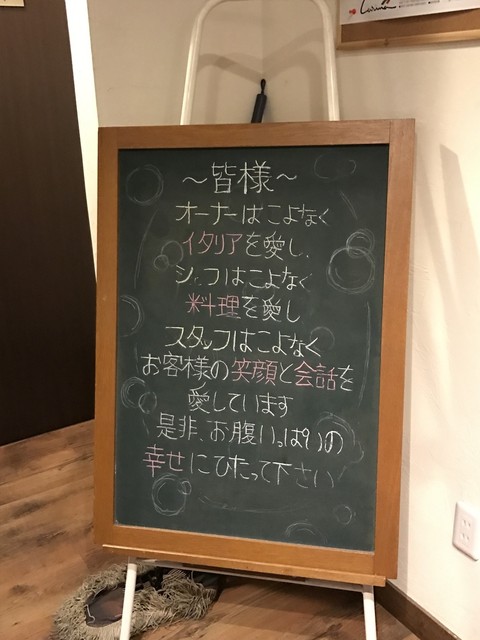 ～皆様～
オーナーはこよなく
イタリアを愛し、
シェフはこよなく
料理を愛し
スタッフはこよなく
お客様の笑顔と会話を
愛しています
是非、お腹いっぱいの
幸せにひたって下さい